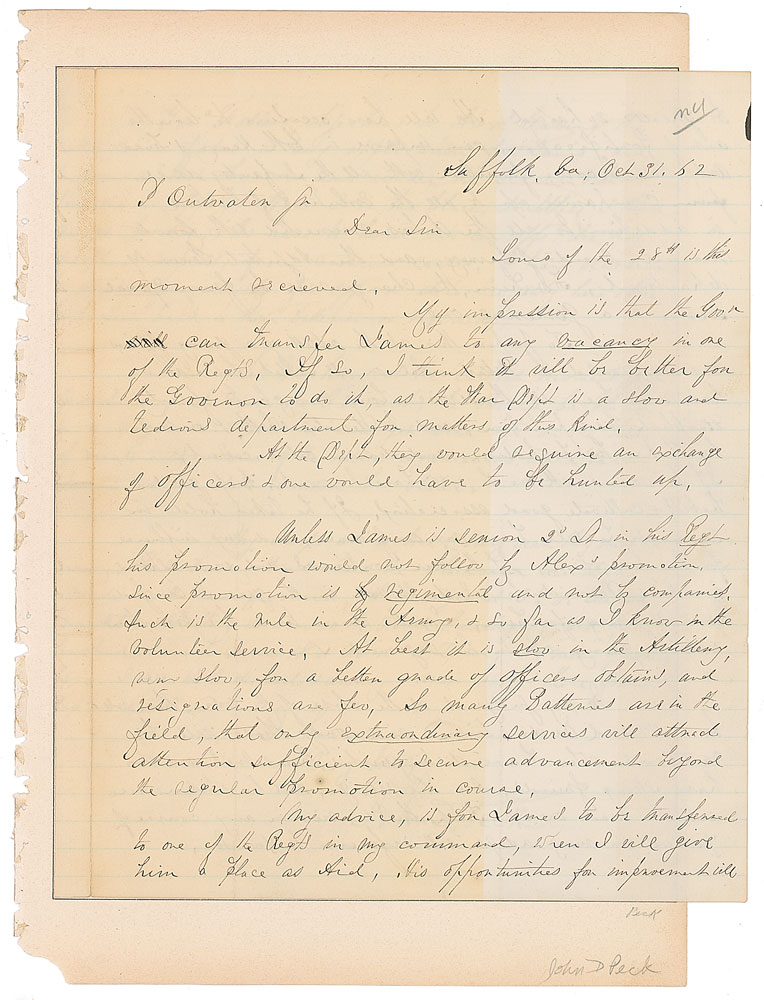 NY
Suffolk, Va, Oct 31. 62
P Outwater Jr
Dear Sir
Yours of the 28th is this
moment recieved.
My impression is that the Gov.r
can transfer James to any vacancy in one
of the Regts, If so, I think it will be better for
the Governor to do it, as the War Dept is a slow and
tedious department for matters of this kind.
At the Dept, they would require an exchange
of officers & one would have to be hunted up.
Unless James is senior 2d Lt in his Regt
his promotion would not follow by Alex's promotion,
since promotion is regimental and not by companies.
Such is the rule in the Army, & so far as I know in the
volunteer service. At best it is slow in the Artillery,
very slow, for a better grade of officers obtains, and
resignations are few, So many Batteries are in the
field, that only extraordinary services will attract
attention sufficient to secure advancement beyond
the regular promotion in course.
My advice, is for James to be transferred
to one of the Regts in my command, when I will give
him a place as Aid, His opportunities for improvement will
Peck
John D Peck